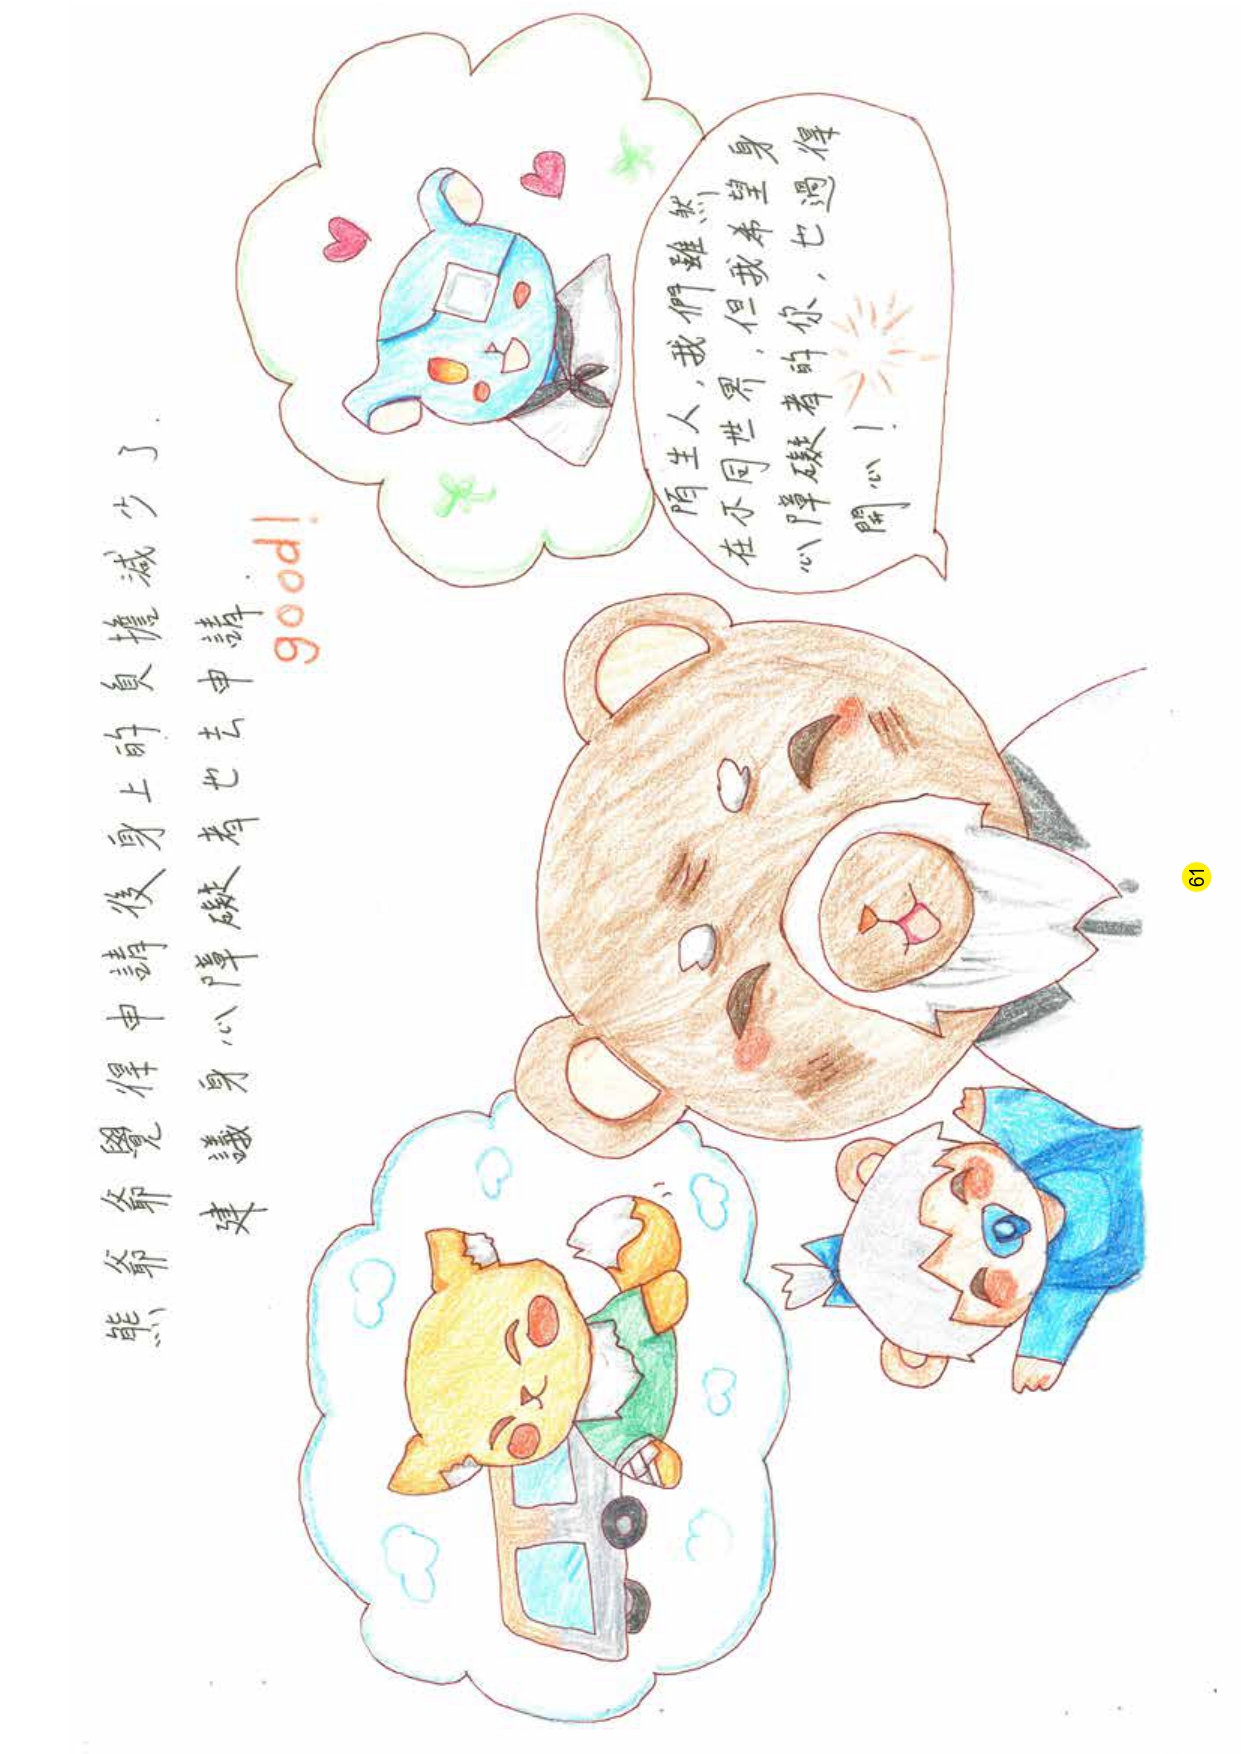 熊爺爺覺得申請後身上的負擔減少了.
建議身心障礙者也去申請.
good!
陌生人,我們雖然
在不同世界,但我希望身
心障礙者的你,也過得
開心!
61